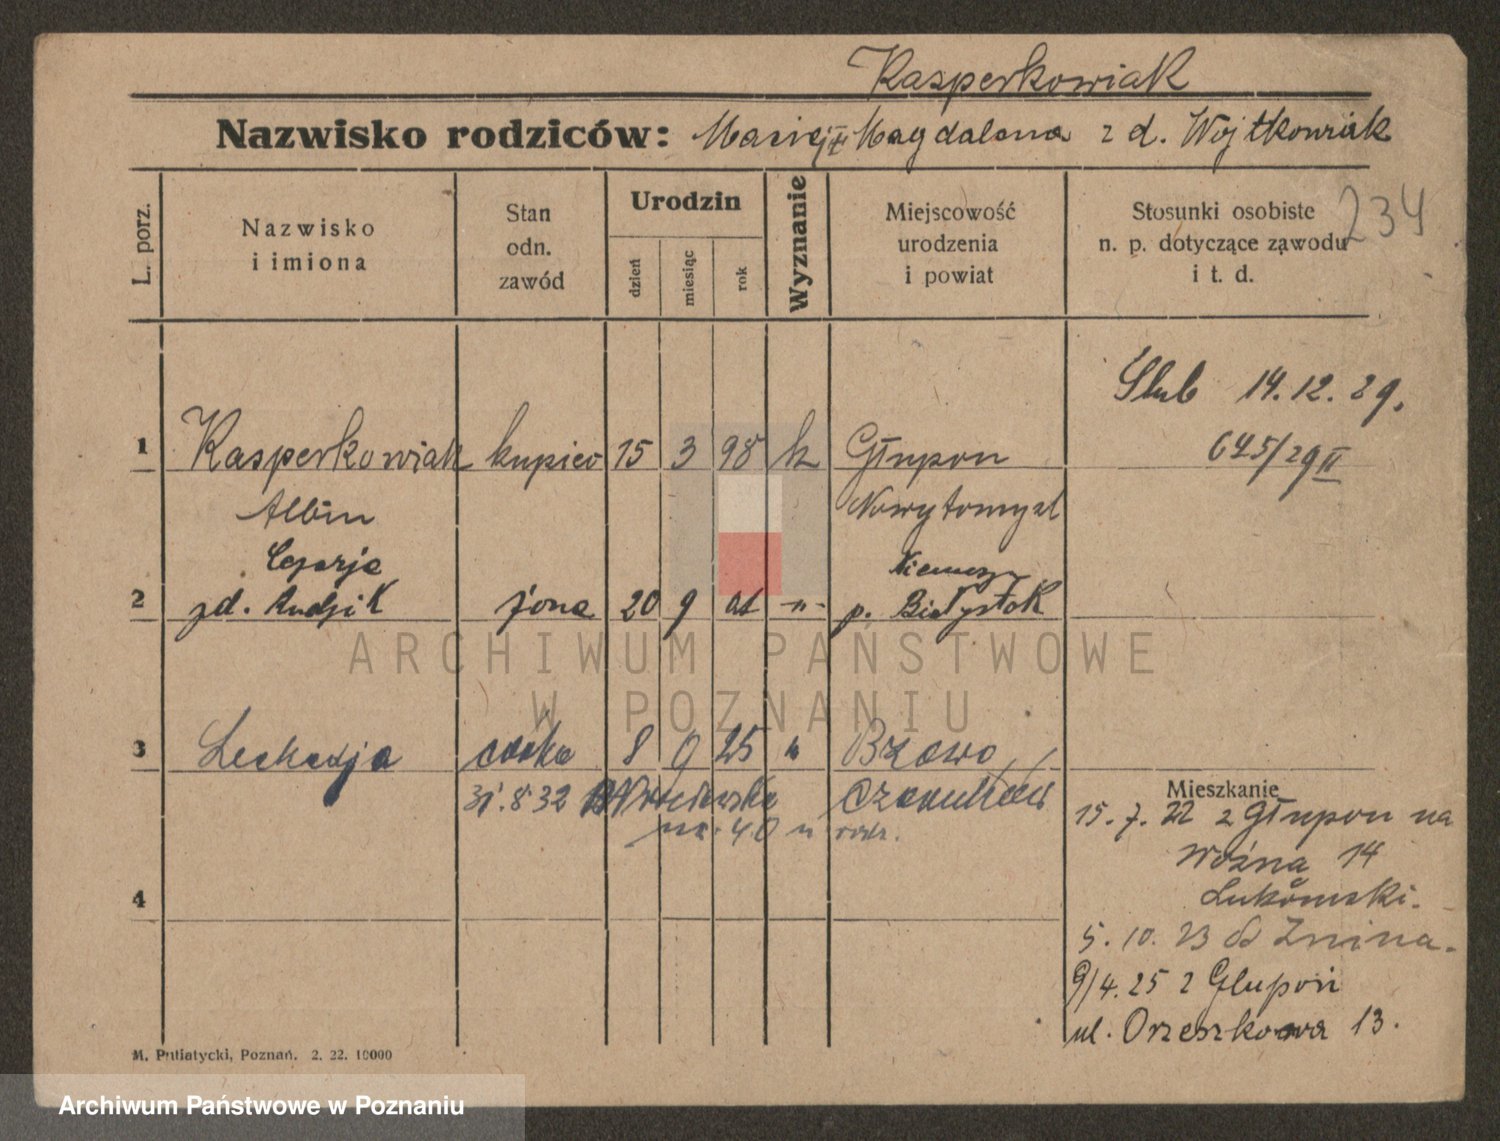 Kasperkowiak
Nazwisko rodziców: Maciej i Magdalena z d. Wojtkowiak
234
L. porz.
Nazwisko
i imiona
Stan
odn.
zawód
Urodzin
dzień
miesiąc
rok
Wyznanie
Miejscowość
urodzenia
i powiat
Stosunki osobiste
n. p. dotyczące zawodu
i t. d.
Ślub 14.12.29.
1 Kasperkowiak kupiec 15 3 98 k Głupon 645/29 II
Albin Nowytomyśl
Cezarja
2 zd. Rudzik żona 20 9 01 -"- p. Białystok
3 Leokadja córka 8 9 25 " Brzowo
31.8.32 Czarnków
nr. 40 u rodz.
Mieszkanie
15.7.22 z Głupon na
Woźna 14
Łukomski.
4
5.10.23 do Żnina.
9/4.25 z Głupoń
ul. Orzeszkowa 13.
M. Putiatycki, Poznań. 2. 22. 10000
ARCHIWUM PAŃSTWOWE
W POZNANIU
Archiwum Państwowe w Poznaniu